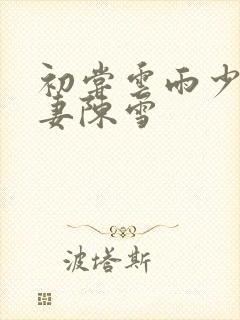 初尝雲雨少
妻陳雪
波塔斯